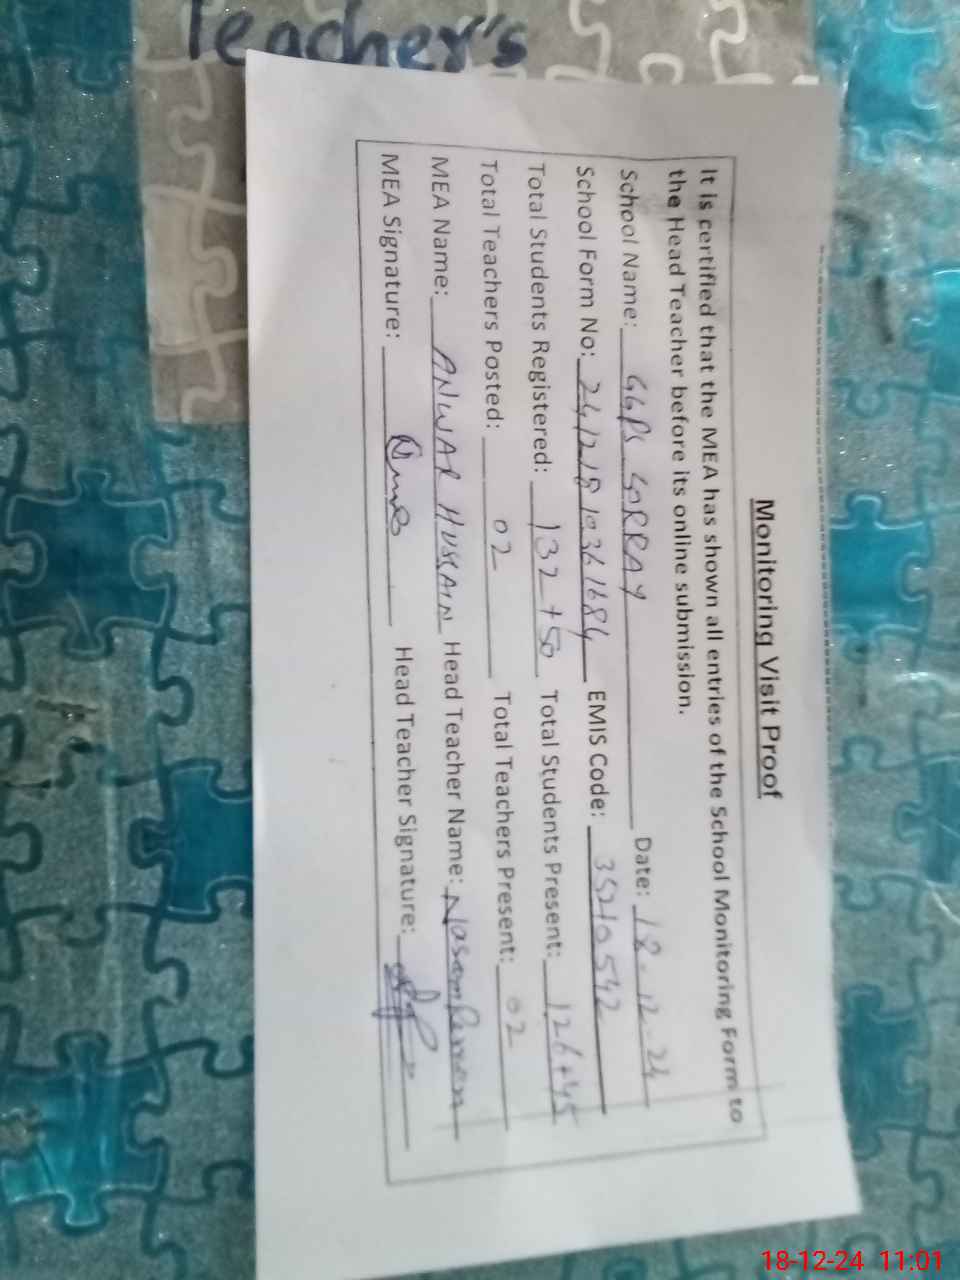 Teacher's
Monitoring Visit Proof
It is certified that the MEA has shown all entries of the School Monitoring Form to
the Head Teacher before its online submission.
School Name: GGPS SORRAY Date: 18-12-24
School Form No: 24121810361684 EMIS Code: 35210542
Total Students Registered: 132+50 Total Students Present: 126+45
Total Teachers Posted: 02 Total Teachers Present: 02
MEA Name: ANWAR HUSSAIN Head Teacher Name:
MEA Signature: Head Teacher Signature:
18-12-24 11:01